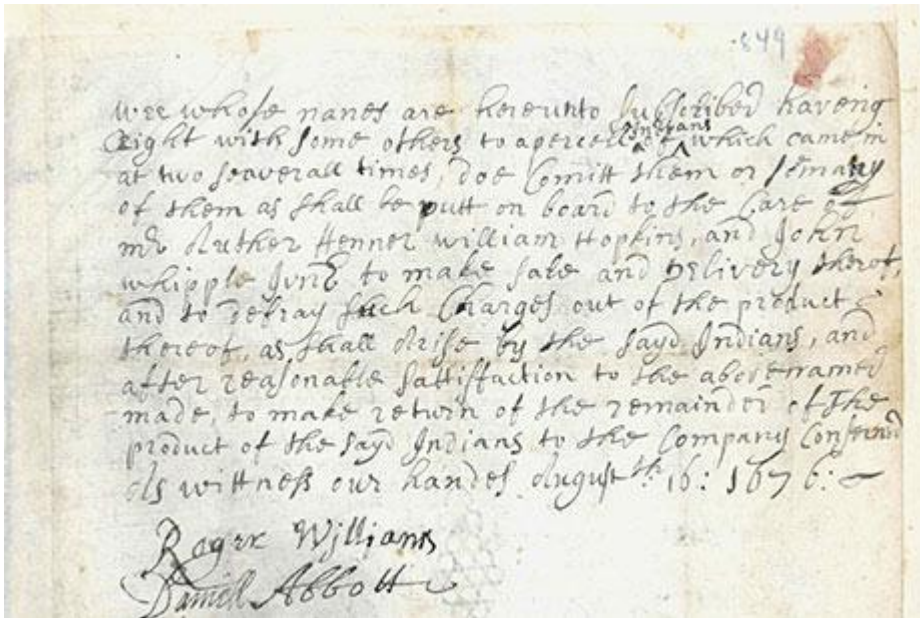 849
wee whose names are hereunto Subscribed haveing
Right with some others to apercell of Indians which came in
at two Seaverall times, doe Comitt them or so many
of them as shall be putt on board to the Care of
mr Arthur Fenner William Hopkins, and John
whipple Junr to make sale and Delivery therof,
and to defray such Charges out of the product
thereof, as shall Arise by the sayd Indians, and
after reasonable sattisfaction to the abovenamed
made, to make return of the remainder of the
product of the sayd Indians to the Company Conserned
As wittness our handes August th: 16: 1676:
Roger Williams
Daniell Abbott